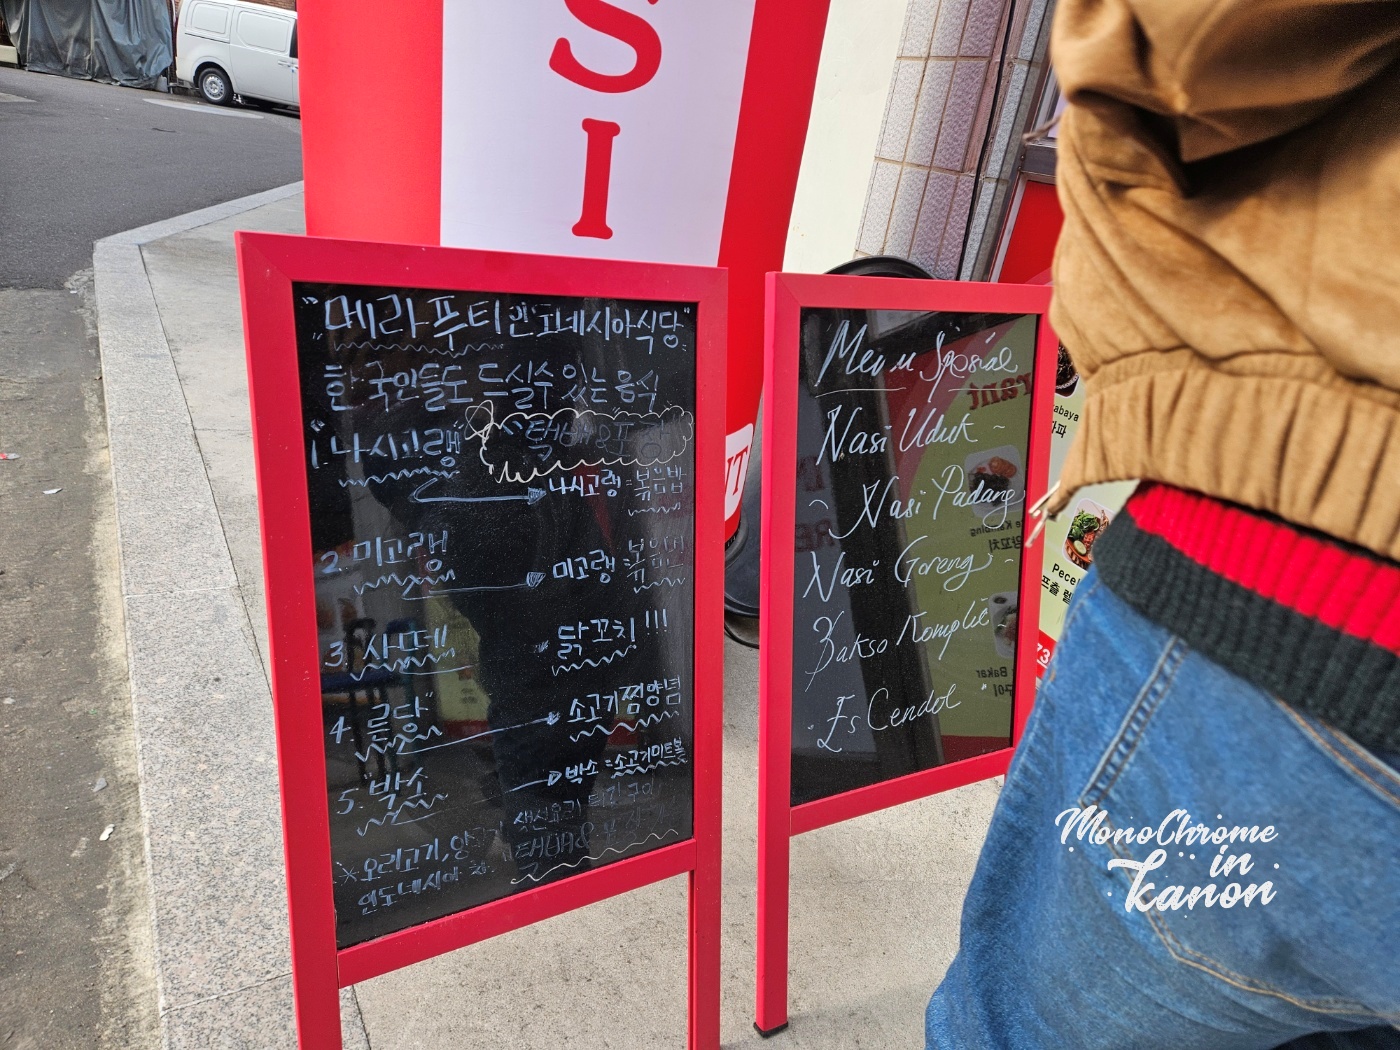 S
I
"메라푸티 인도네시아식당"
한국인들도 드실수 있는 음식
1. "나시고랭"
택배&포장
나시고랭 = 볶음밥
2. 미고랭
미고랭 = 볶음면
3. 사떼
닭꼬치!!!
4. "른당"
소고기찜양념
5. "박소"
박소 = 소고기미트볼
※ 오리고기, 생선요리 튀김 구이
인도네시아 택배&
Menu Spesial
Nasi Uduk ~
~ Nasi Padang
Nasi Goreng ~
Bakso Komplit ~
Es Cendol
rant
abaya
Pecel
Bakar
NT
73
MonoChrome
in
kanon